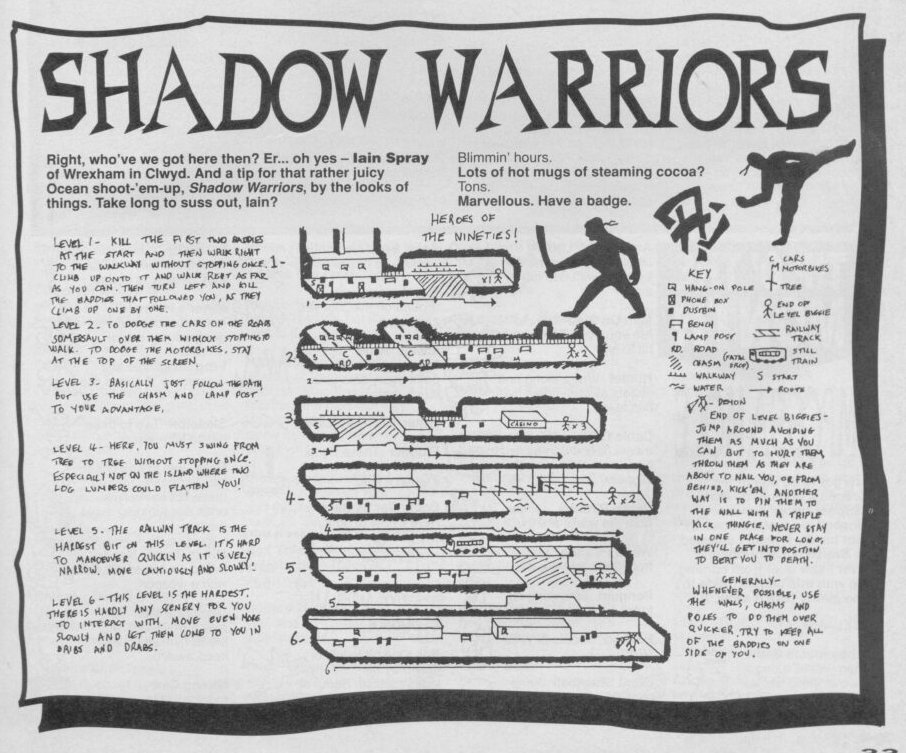 SHADOW WARRIORS
Right, who've we got here then? Er... oh yes – Iain Spray
of Wrexham in Clwyd. And a tip for that rather juicy
Ocean shoot-'em-up, Shadow Warriors, by the looks of
things. Take long to suss out, Iain?
Blimmin' hours.
Lots of hot mugs of steaming cocoa?
Tons.
Marvellous. Have a badge.
HEROES OF
THE NINETIES!
LEVEL 1- KILL THE FIRST TWO BADDIES
AT THE START AND THEN WALK RIGHT
TO THE WALKWAY WITHOUT STOPPING ONCE.
CLIMB UP ONTO IT AND WALK RIGHT AS FAR
AS YOU CAN. THEN TURN LEFT AND KILL
THE BADDIES THAT FOLLOWED YOU, AS THEY
CLIMB UP ONE BY ONE.
LEVEL 2. TO DODGE THE CARS ON THE ROADS
SOMERSAULT OVER THEM WITHOUT STOPPING TO
WALK. TO DODGE THE MOTORBIKES, STAY
AT THE TOP OF THE SCREEN.
LEVEL 3- BASICALLY JUST FOLLOW THE PATH
BUT USE THE CHASM AND LAMP POST
TO YOUR ADVANTAGE.
LEVEL 4- HERE, YOU MUST SWING FROM
TREE TO TREE WITHOUT STOPPING ONCE.
ESPECIALLY NOT ON THE ISLAND WHERE TWO
LOG LUMBERS COULD FLATTEN YOU!
LEVEL 5- THE RAILWAY TRACK IS THE
HARDEST BIT ON THIS LEVEL. IT IS HARD
TO MANOEUVER QUICKLY AS IT IS VERY
NARROW. MOVE CAUTIOUSLY AND SLOWLY!
LEVEL 6- THIS LEVEL IS THE HARDEST.
THERE IS HARDLY ANY SCENERY FOR YOU
TO INTERACT WITH. MOVE EVEN MORE
SLOWLY AND LET THEM COME TO YOU IN
DRIBS AND DRABS.
1-
S
X1
1
2-
S
C
RD
C
RD
M
X2
2
3
S
CASINO
X3
3
4-
S
X2
4
5-
S
X2
5
6-
S
6
KEY
HANG-ON POLE
PHONE BOX
DUSTBIN
BENCH
LAMP POST
RD. ROAD
CHASM (FATAL DROP)
WALKWAY
WATER
C CARS
M MOTORBIKES
TREE
END OF
LEVEL BIGGIE
RAILWAY
TRACK
STILL
TRAIN
S START
ROUTE
- DEMON
END OF LEVEL BIGGIES-
JUMP AROUND AVOIDING
THEM AS MUCH AS YOU
CAN BUT TO HURT THEM,
THROW THEM AS THEY ARE
ABOUT TO NAIL YOU, OR FROM
BEHIND, KICK 'EM. ANOTHER
WAY IS TO PIN THEM TO
THE WALL WITH A TRIPLE
KICK THINGIE. NEVER STAY
IN ONE PLACE FOR LONG,
THEY'LL GET INTO POSITION
TO BEAT YOU TO DEATH.
GENERALLY-
WHENEVER POSSIBLE, USE
THE WALLS, CHASMS AND
POLES TO DO THEM OVER
QUICKER. TRY TO KEEP ALL
OF THE BADDIES ON ONE
SIDE OF YOU.